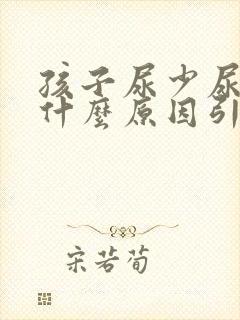 孩子尿少尿
什麼原因引
宋若荀